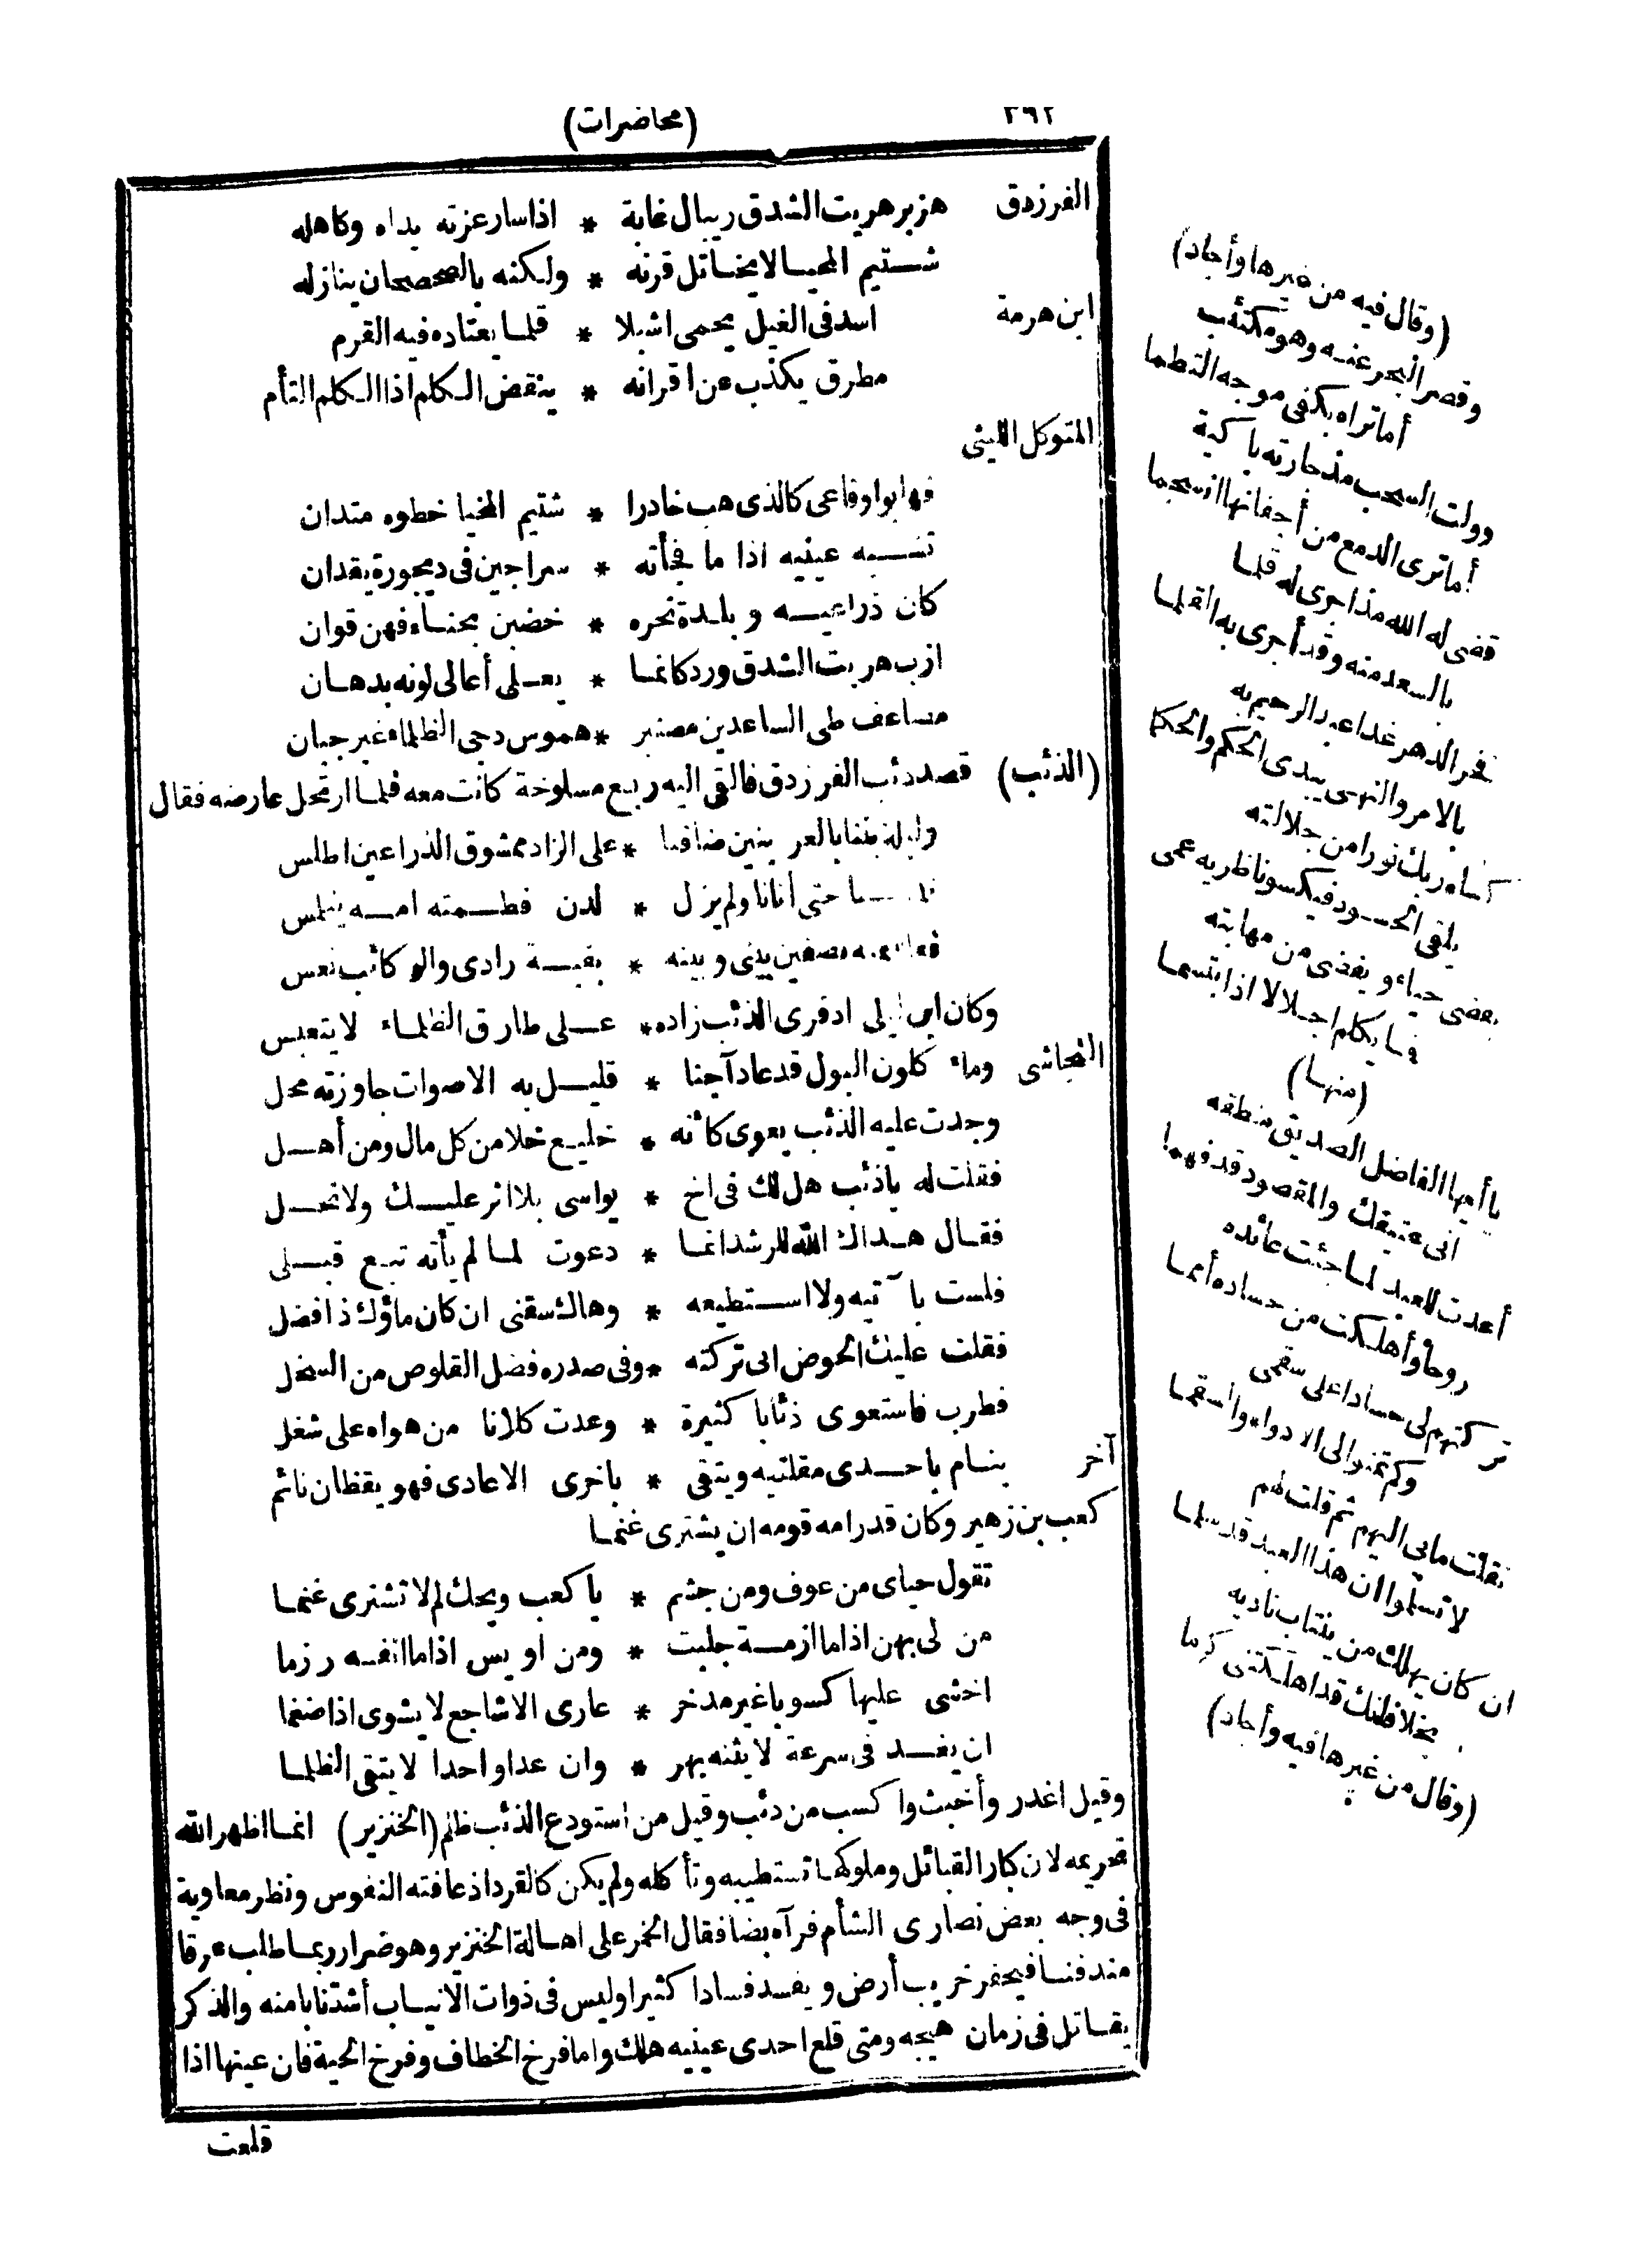 ٢٩٢
(محاضرات)
الفرزدق هزبر هريت الشدق ريبال غابة * اذا سار عزته يداه وكاهله
شتيم المحيا لا يخاتل قرنه * ولكنه بالصحصحان ينازله
ابن هرمة اسد فى الغيل يحمى اشبلا * قلما يعتاده فيه القرم
مطرق يكذب عن اقرانه * ينقض الكلم اذا الكلم التأم
المتوكل الليثى
فهابوا وقاعى كالذى هب خادرا * شتيم المحيا خطوه متدان
تشبه عينيه اذا ما فجأته * سراجين فى ديجورة يقدان
كان ذراعيه و بلدة نحره * خضبن بحناء فهن قوان
ازب هريت الشدق ورد كانما * يعلى أعالى لونه بدهان
مساعف طى الساعدين مصنبر * هموس دجى الظلماء غير جبان
(الذئب) قصد ذئب الفرزدق فالقى اليه ربع مسلوخة كانت معه فلما ارتحل عارضه فقال
وليلة بتنا بالغريين ضافنا * على الزاد ممشوق الذراعين اطلس
حتى أتانا ولم يزل * لدن فطمته امه يتلمس
نصفين بينى وبينه * بقية زادى والركائب نعس
وكان ابن ليلى اذ قرى الذئب زاده * على طارق الظلماء لا يتعبس
النجاشى وماء كلون البول قد عاد آجنا * قليل به الاصوات جاوزته محل
وجدت عليه الذئب يعوى كأنه * خليع خلا من كل مال ومن أهل
فقلت له ياذئب هل لك فى اخ * يواسى بلا اثر عليك ولا بخل
فقال هداك الله للرشد انما * دعوت لما لم يأته تبع قبلى
فلست بآتيه ولا استطيعه * وهاك سقنى ان كان ماؤك ذا فضل
فقلت عليك الحوض انى تركته * وفى صدره فضل القلوص من السجل
فطرب فاستعوى ذئابا كثيرة * وعدت كلانا من هواه على شغل
آخر ينام باحدى مقلتيه ويتقى * باخرى الاعادى فهو يقظان نائم
كعب بن زهير وكان قد رامه قومه ان يشترى غنما
تقول حياى من عوف ومن جشم * يا كعب ويحك لم لا تشترى غنما
من لى بهن اذا ما ازمة جلبت * ومن اويس اذا ما انفه رزما
اخشى عليها كسوبا غير مدخر * عارى الاشاجع لا يشوى اذا ضغما
ان يغد فى سرعة لا يثنه بهر * وان عدا واحدا لا يتقى الظلما
وقيل اغدر وأخبث واكسب من ذئب وقيل من استودع الذئب ظلم (الخنزير) انما اظهر الله
تحريمه لان كبار القبائل وملوكها تستطيبه وتأكله ولم يكن كالقرد اذ عافته النفوس ونظر معاوية
فى وجه بعض نصارى الشأم فرآه بضا فقال الخمر على اهالة الخنزير وهو ضرار ربما طلب عرقا
مندفنا فيحفر خريب أرض ويفسد فسادا كثيرا وليس فى ذوات الانياب أشد نابا منه والذكر
يقاتل فى زمان هيجه ومتى قلع احدى عينيه هلك واما فرخ الخطاف وفرخ الحية فان عينها اذا
قلعت
(وقال فيه من غيرها وأجاد)
وقصر البحر عنه وهو مكتئب
أما تراه بكفى موجه التطما
وولت السحب مذ جارته باكية
أما ترى الدمع من أجفانها انسجما
قضى له الله مذ اجرى له قلما
بالسعد منه وقد أجرى به القلما
فخر الدهر غدا عبد الرحيم به
بالامر والنهى يبدى الحكم والحكما
كساه ربك نورا من جلالته
يلقى الحسود فيكسو ناظريه عمى
يغضى حياء ويغضى من مهابته
فما يكلم اجلالا اذا ابتسما
(منها)
يا أيها الفاضل الصديق منطقه
انى عتيقك والمقصود قد فهما
أعدت للعبد لما جئت عائده
روحا وأهلكت من حساده أمما
تركتهم لى حسادا على سقمى
وكم تمنوا لى الادواء والسقما
نقلت مابى اليهم ثم قلت لهم
لا تسلموا ان هذا العبد قد سلما
ان كان يهلك من ينتاب ناديه
بخلا فانك قد اهلكتنى كرما
(وقال من غيرها فيه وأجاد)